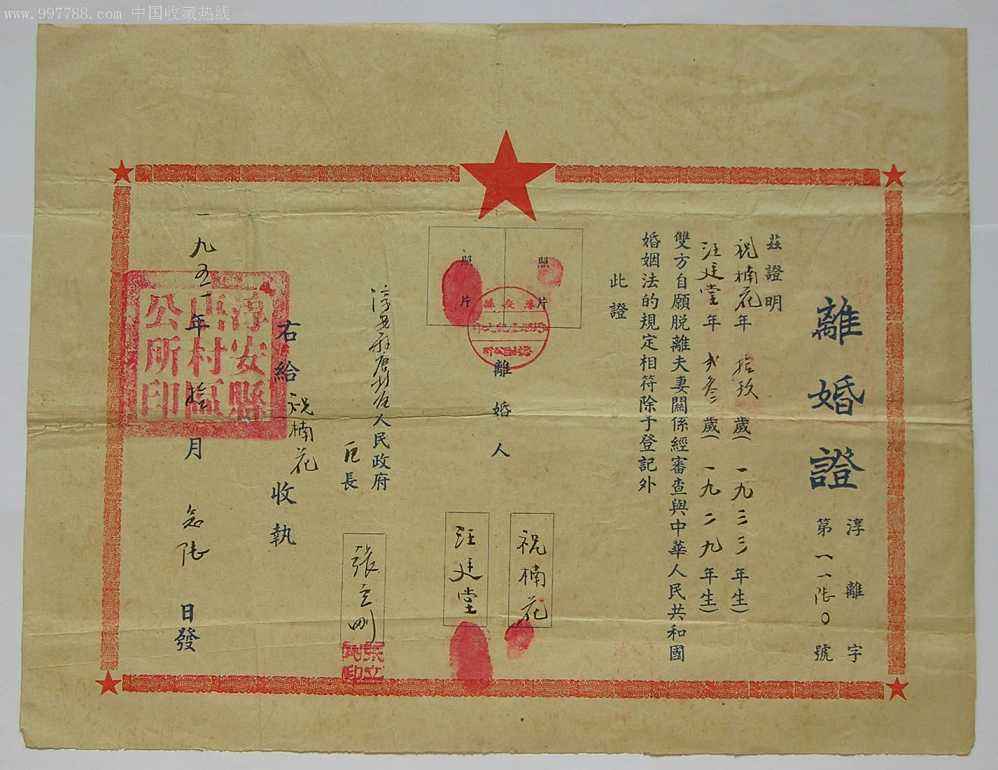 www.997788.com 中国收藏热线
離婚證
淳離字
第一一陸〇號
茲證明
祝楠花年拾玖歲(一九三三年生)
汪廷堂年弍叁歲(一九二九年生)
雙方自願脫離夫妻關係經審查與中華人民共和國
婚姻法的規定相符除予登記外
此證
照片
照片
離婚人
祝楠花
汪廷堂
人民政府
區長
張立
右給祝楠花收執
一九五一年拾月念陸日發
淳安縣
村區
公所印